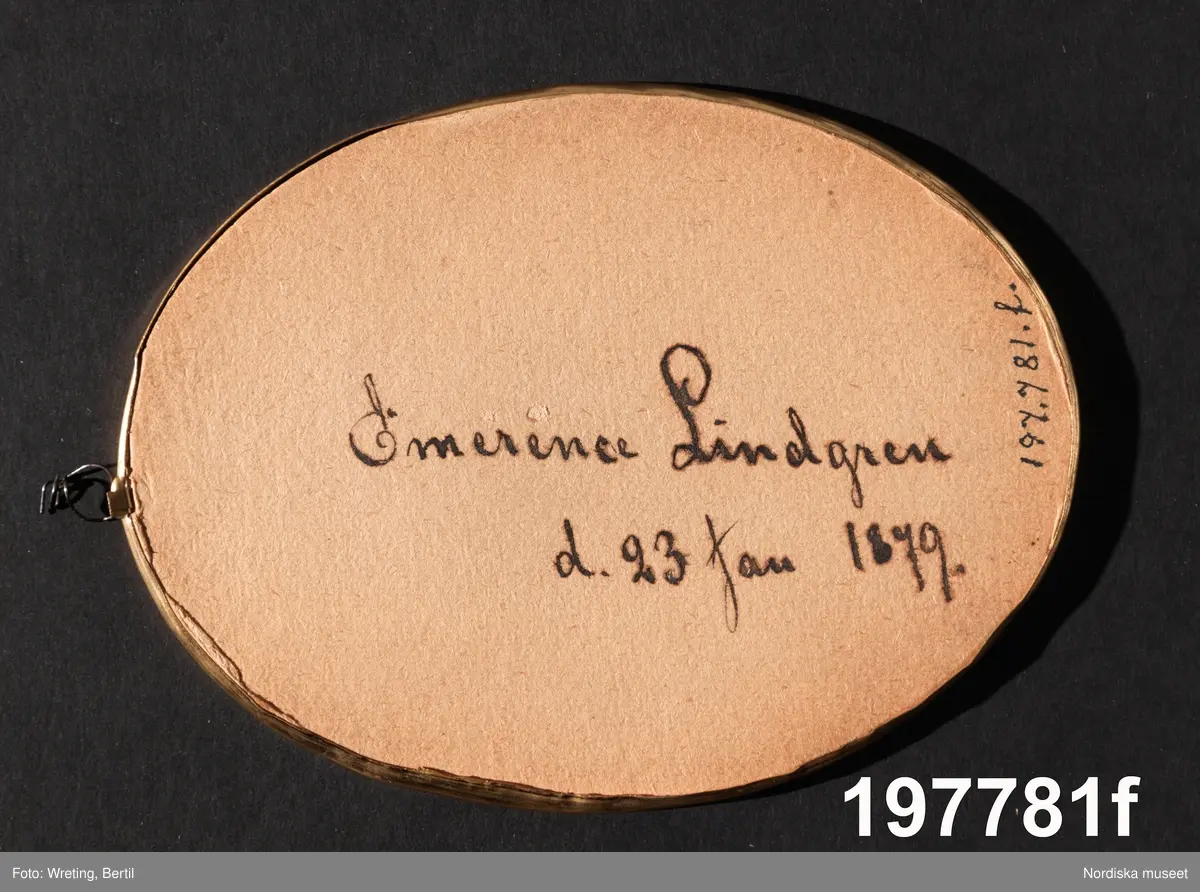 Emerence Lindgren
d. 23 Jan 1879.
197.781.f.
197781f
Foto: Wreting, Bertil
Nordiska museet